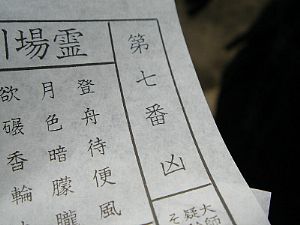 第七番 凶
大師
疑
そ
霊場
登舟待便風
月色暗朦朧
欲碾香輪